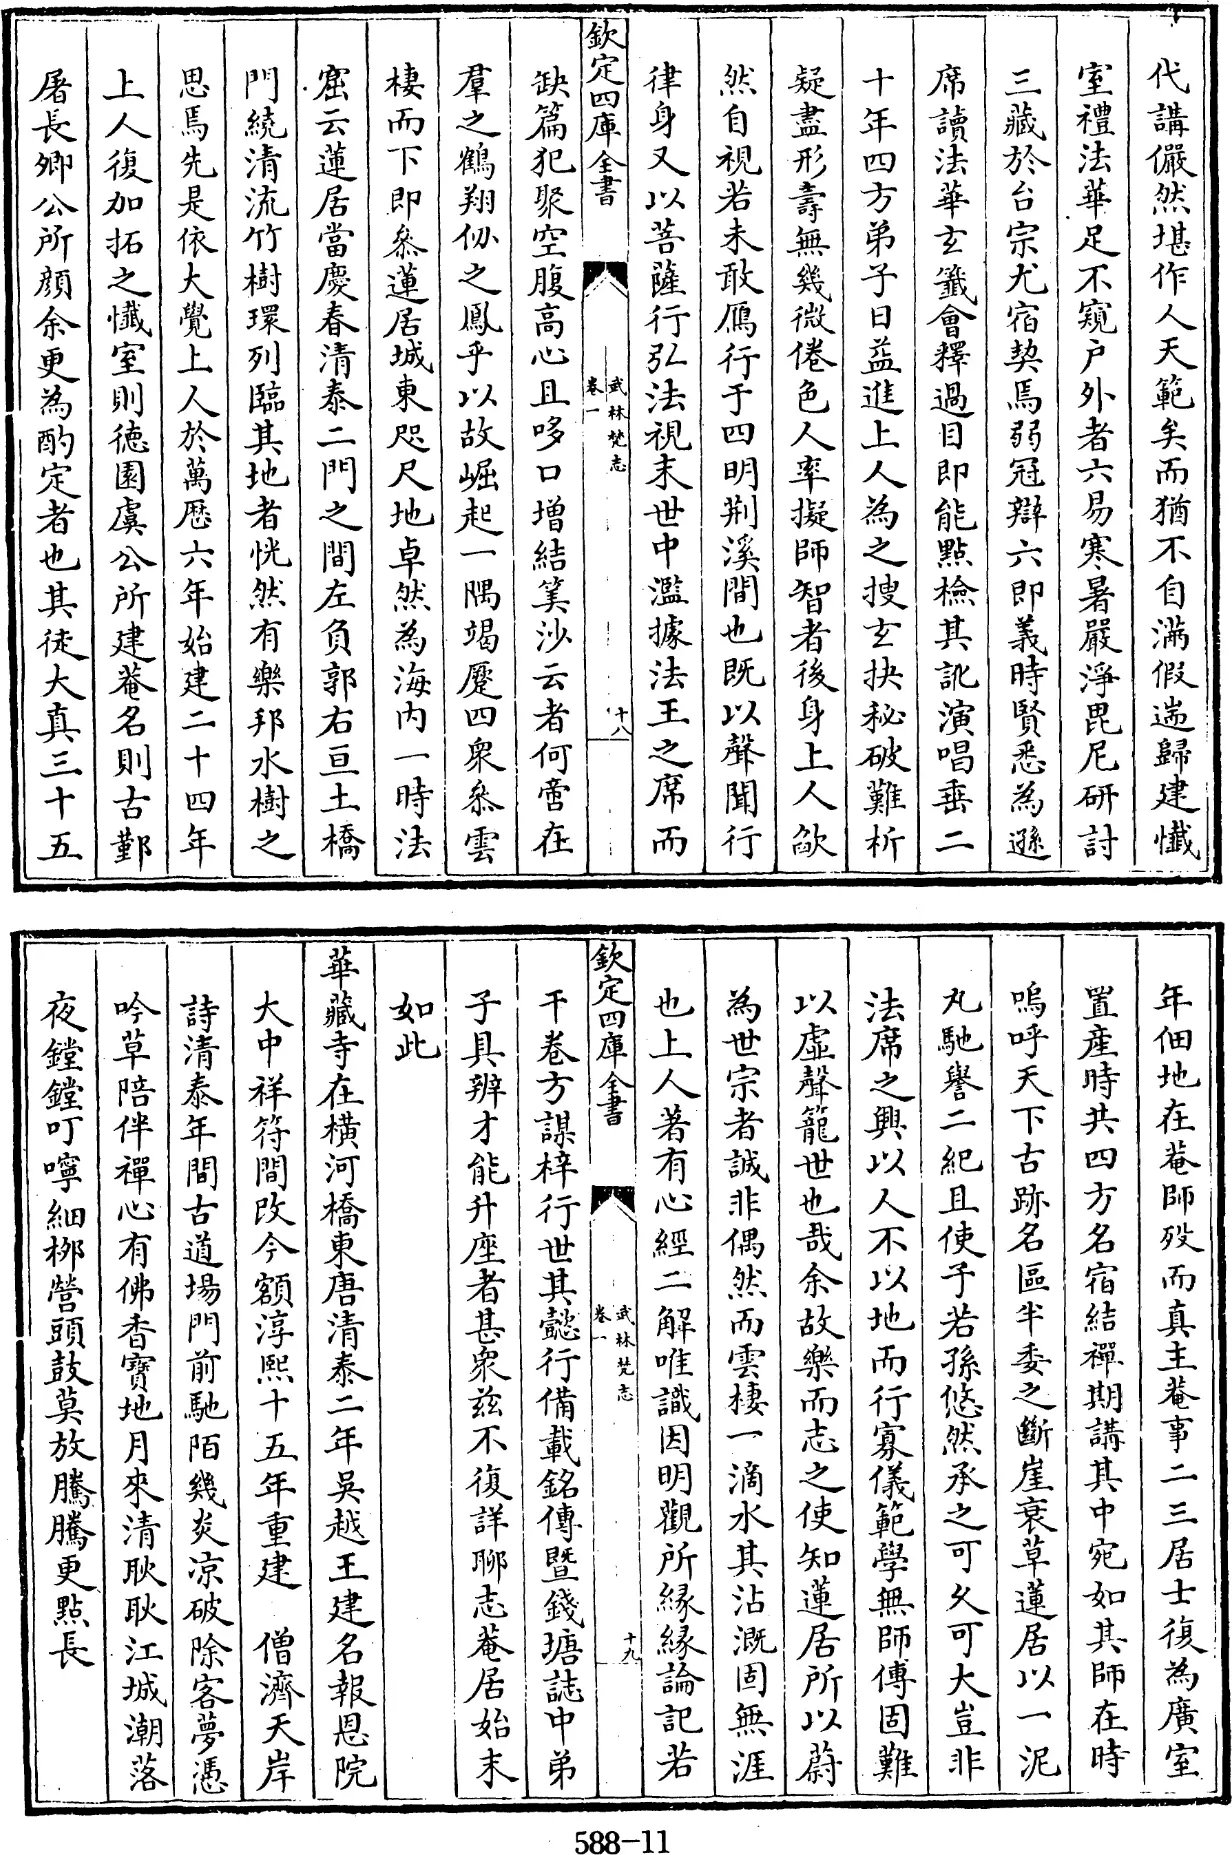 代講儼然堪作人天範矣而猶不自滿假遄歸建懺
室禮法華足不窺户外者六易寒暑嚴淨毘尼研討
三藏於台宗尤宿契焉弱冠辯六即義時賢悉為遜
席讀法華玄籤會釋過目即能點檢其訛演唱垂二
十年四方弟子日益進上人為之搜玄抉秘破難析
疑盡形壽無幾微倦色人率擬師智者後身上人歘
然自視若未敢鴈行于四明荆溪間也既以聲聞行
律身又以菩薩行弘法視末世中濫據法王之席而
欽定四庫全書
武林梵志
卷一
十八
缺篇犯聚空腹高心且哆口增結筭沙云者何啻在
羣之鶴翔仭之鳳乎以故崛起一隅竭蹷四衆叅雲
棲而下即叅蓮居城東咫尺地卓然為海内一時法
窟云蓮居當慶春清泰二門之間左負郭右亘土橋
門繞清流竹樹環列臨其地者恍然有樂邦水樹之
思焉先是依大覺上人於萬厯六年始建二十四年
上人復加拓之懺室則德園虞公所建菴名則古鄞
屠長卿公所顔余更為酌定者也其徒大真三十五
年佃地在菴師歿而真主菴事二三居士復為廣室
置產時共四方名宿結禪期講其中宛如其師在時
嗚呼天下古跡名區半委之斷崖衰草蓮居以一泥
丸馳譽二紀且使子若孫悠然承之可乆可大豈非
法席之興以人不以地而行寡儀範學無師傳固難
以虛聲籠世也哉余故樂而志之使知蓮居所以蔚
為世宗者誠非偶然而雲棲一滴水其沾溉固無涯
也上人著有心經二解唯識因明觀所縁縁論記若
欽定四庫全書
武林梵志
卷一
十九
干卷方謀梓行世其懿行備載銘傳暨錢塘誌中弟
子具辨才能升座者甚衆兹不復詳聊志菴居始末
如此
華藏寺在橫河橋東唐清泰二年吳越王建名報恩院
大中祥符間改今額淳熙十五年重建　僧濟天岸
詩清泰年間古道場門前馳陌幾炎凉破除客夢憑
吟草陪伴禪心有佛香寳地月來清耿耿江城潮落
夜鏜鏜叮嚀細栁營頭鼓莫放騰騰更點長
588-11